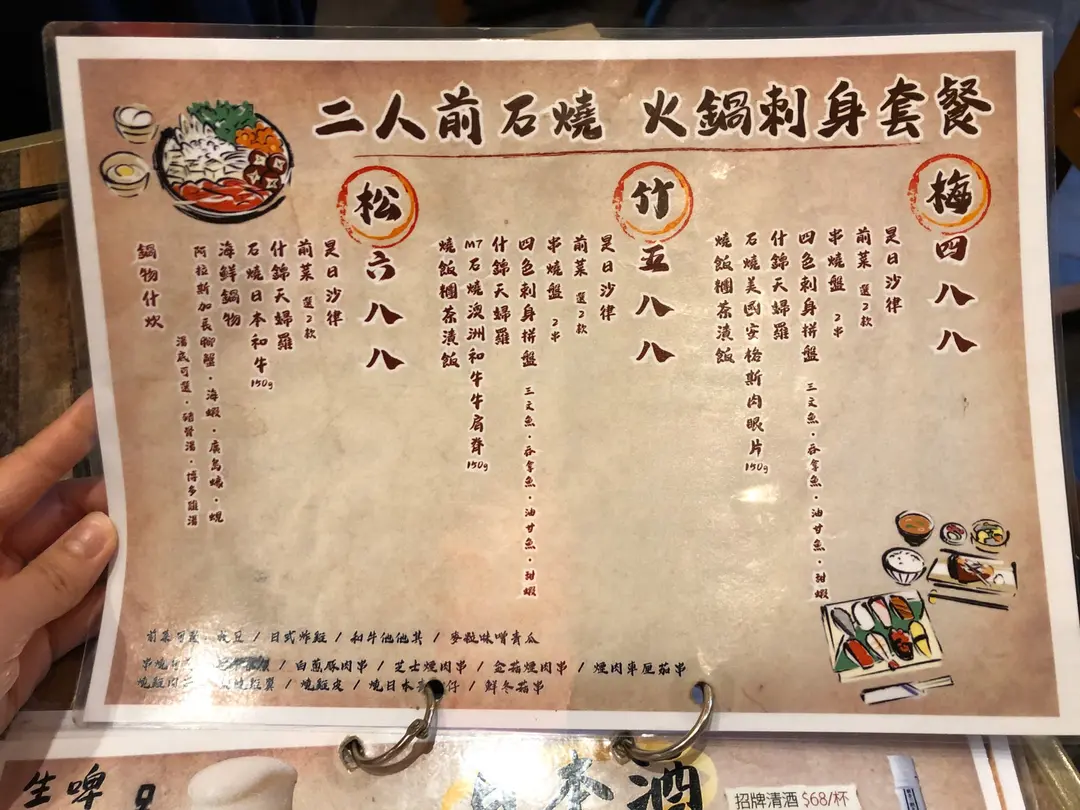 二人前石燒 火鍋刺身套餐
梅
四八八
是日沙律
前菜 選2款
串燒盤 2串
四色刺身拼盤 三文魚・吞拿魚・油甘魚・甜蝦
什錦天婦羅
石燒美国安格斯肉眼片 150g
燒飯糰茶漬飯
竹
五八八
是日沙律
前菜 選2款
串燒盤 2串
四色刺身拼盤 三文魚・吞拿魚・油甘魚・甜蝦
什錦天婦羅
M7石燒澳洲和牛牛肩脊 150g
燒飯糰茶漬飯
松
六八八
是日沙律
前菜 選2款
什錦天婦羅
石燒日本和牛 150g
海鮮鍋物
阿拉斯加長腳蟹・海蝦・廣島蠔・蜆
湯底可選・豬骨湯・博多雞湯
鍋物什炊
前菜可選 枝豆 / 日式炸雞 / 和牛他他其 / 麥粒味噌青瓜
串燒 / 白蔥豚肉串 / 芝士煙肉串 / 金菇煙肉串 / 煙肉車厘茄串
燒雞肉 雞翼 / 燒雞皮 / 燒日本 仔 / 鮮冬菇串
生啤
日本酒
招牌清酒 $68/杯